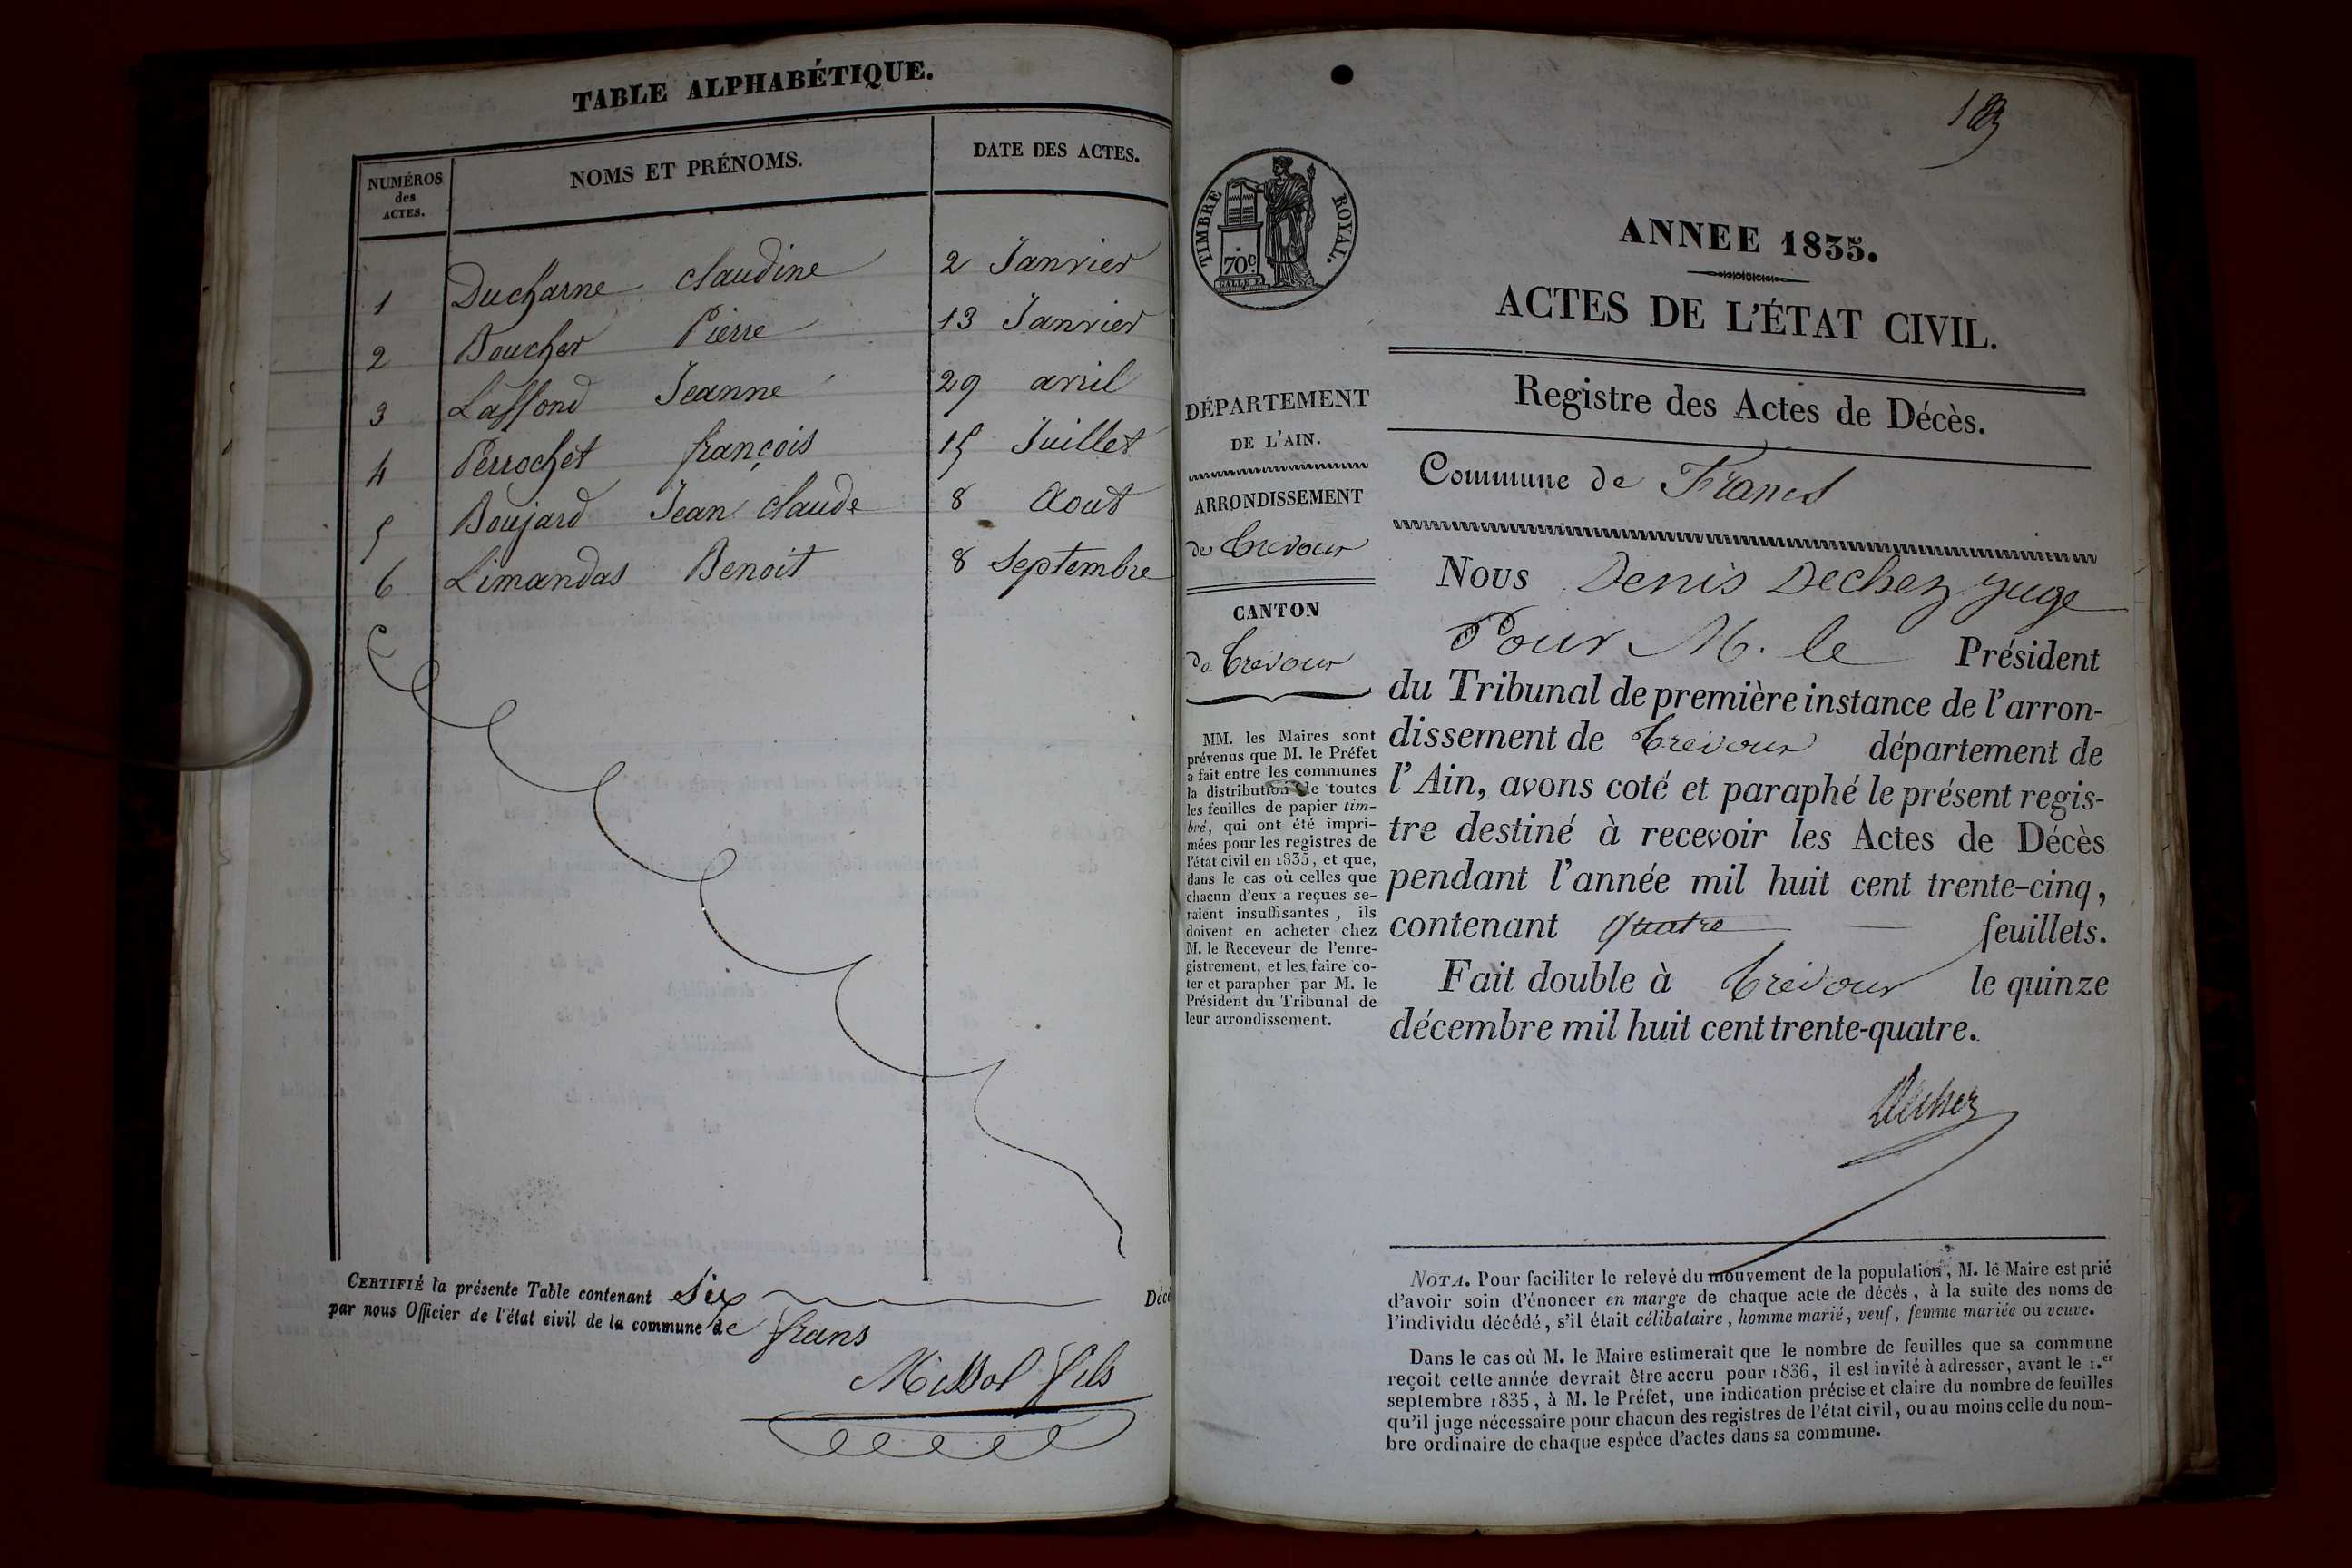 TABLE ALPHABÉTIQUE.
NUMÉROS
des
ACTES.
NOMS ET PRÉNOMS.
DATE DES ACTES.
1 Ducharne claudine 2 Janvier
2 Boucher Pierre 13 Janvier
3 Laffond Jeanne 29 avril
4 Perrochet françois 15 Juillet
5 Boujard Jean claude 8 Aout
6 Limandas Benoit 8 Septembre
CERTIFIÉ la présente Table contenant Six Décè
par nous Officier de l'état civil de la commune de frans
Missol fils
TIMBRE ROYAL.
70c
ANNEE 1835.
ACTES DE L'ÉTAT CIVIL.
Registre des Actes de Décès.
Commune de Frans
DÉPARTEMENT
DE L'AIN.
ARRONDISSEMENT
de Trevoux
CANTON
de Trevoux
MM. les Maires sont
prévenus que M. le Préfet
a fait entre les communes
la distribution de toutes
les feuilles de papier tim-
bré, qui ont été impri-
mées pour les registres de
l'état civil en 1835, et que,
dans le cas où celles que
chacun d'eux a reçues se-
raient insuffisantes, ils
doivent en acheter chez
M. le Receveur de l'enre-
gistrement, et les faire co-
ter et parapher par M. le
Président du Tribunal de
leur arrondissement.
Nous Denis Dechez juge
Pour M. le Président
du Tribunal de première instance de l'arron-
dissement de Trévoux département de
l'Ain, avons coté et paraphé le présent regis-
tre destiné à recevoir les Actes de Décès
pendant l'année mil huit cent trente-cinq,
contenant quatre feuillets.
Fait double à Trévoux le quinze
décembre mil huit cent trente-quatre.
Dechez
NOTA. Pour faciliter le relevé du mouvement de la population, M. le Maire est prié
d'avoir soin d'énoncer en marge de chaque acte de décès, à la suite des noms de
l'individu décédé, s'il était célibataire, homme marié, veuf, femme mariée ou veuve.
Dans le cas où M. le Maire estimerait que le nombre de feuilles que sa commune
reçoit cette année devrait être accru pour 1836, il est invité à adresser, avant le 1.er
septembre 1835, à M. le Préfet, une indication précise et claire du nombre de feuilles
qu'il juge nécessaire pour chacun des registres de l'état civil, ou au moins celle du nom-
bre ordinaire de chaque espèce d'actes dans sa commune.